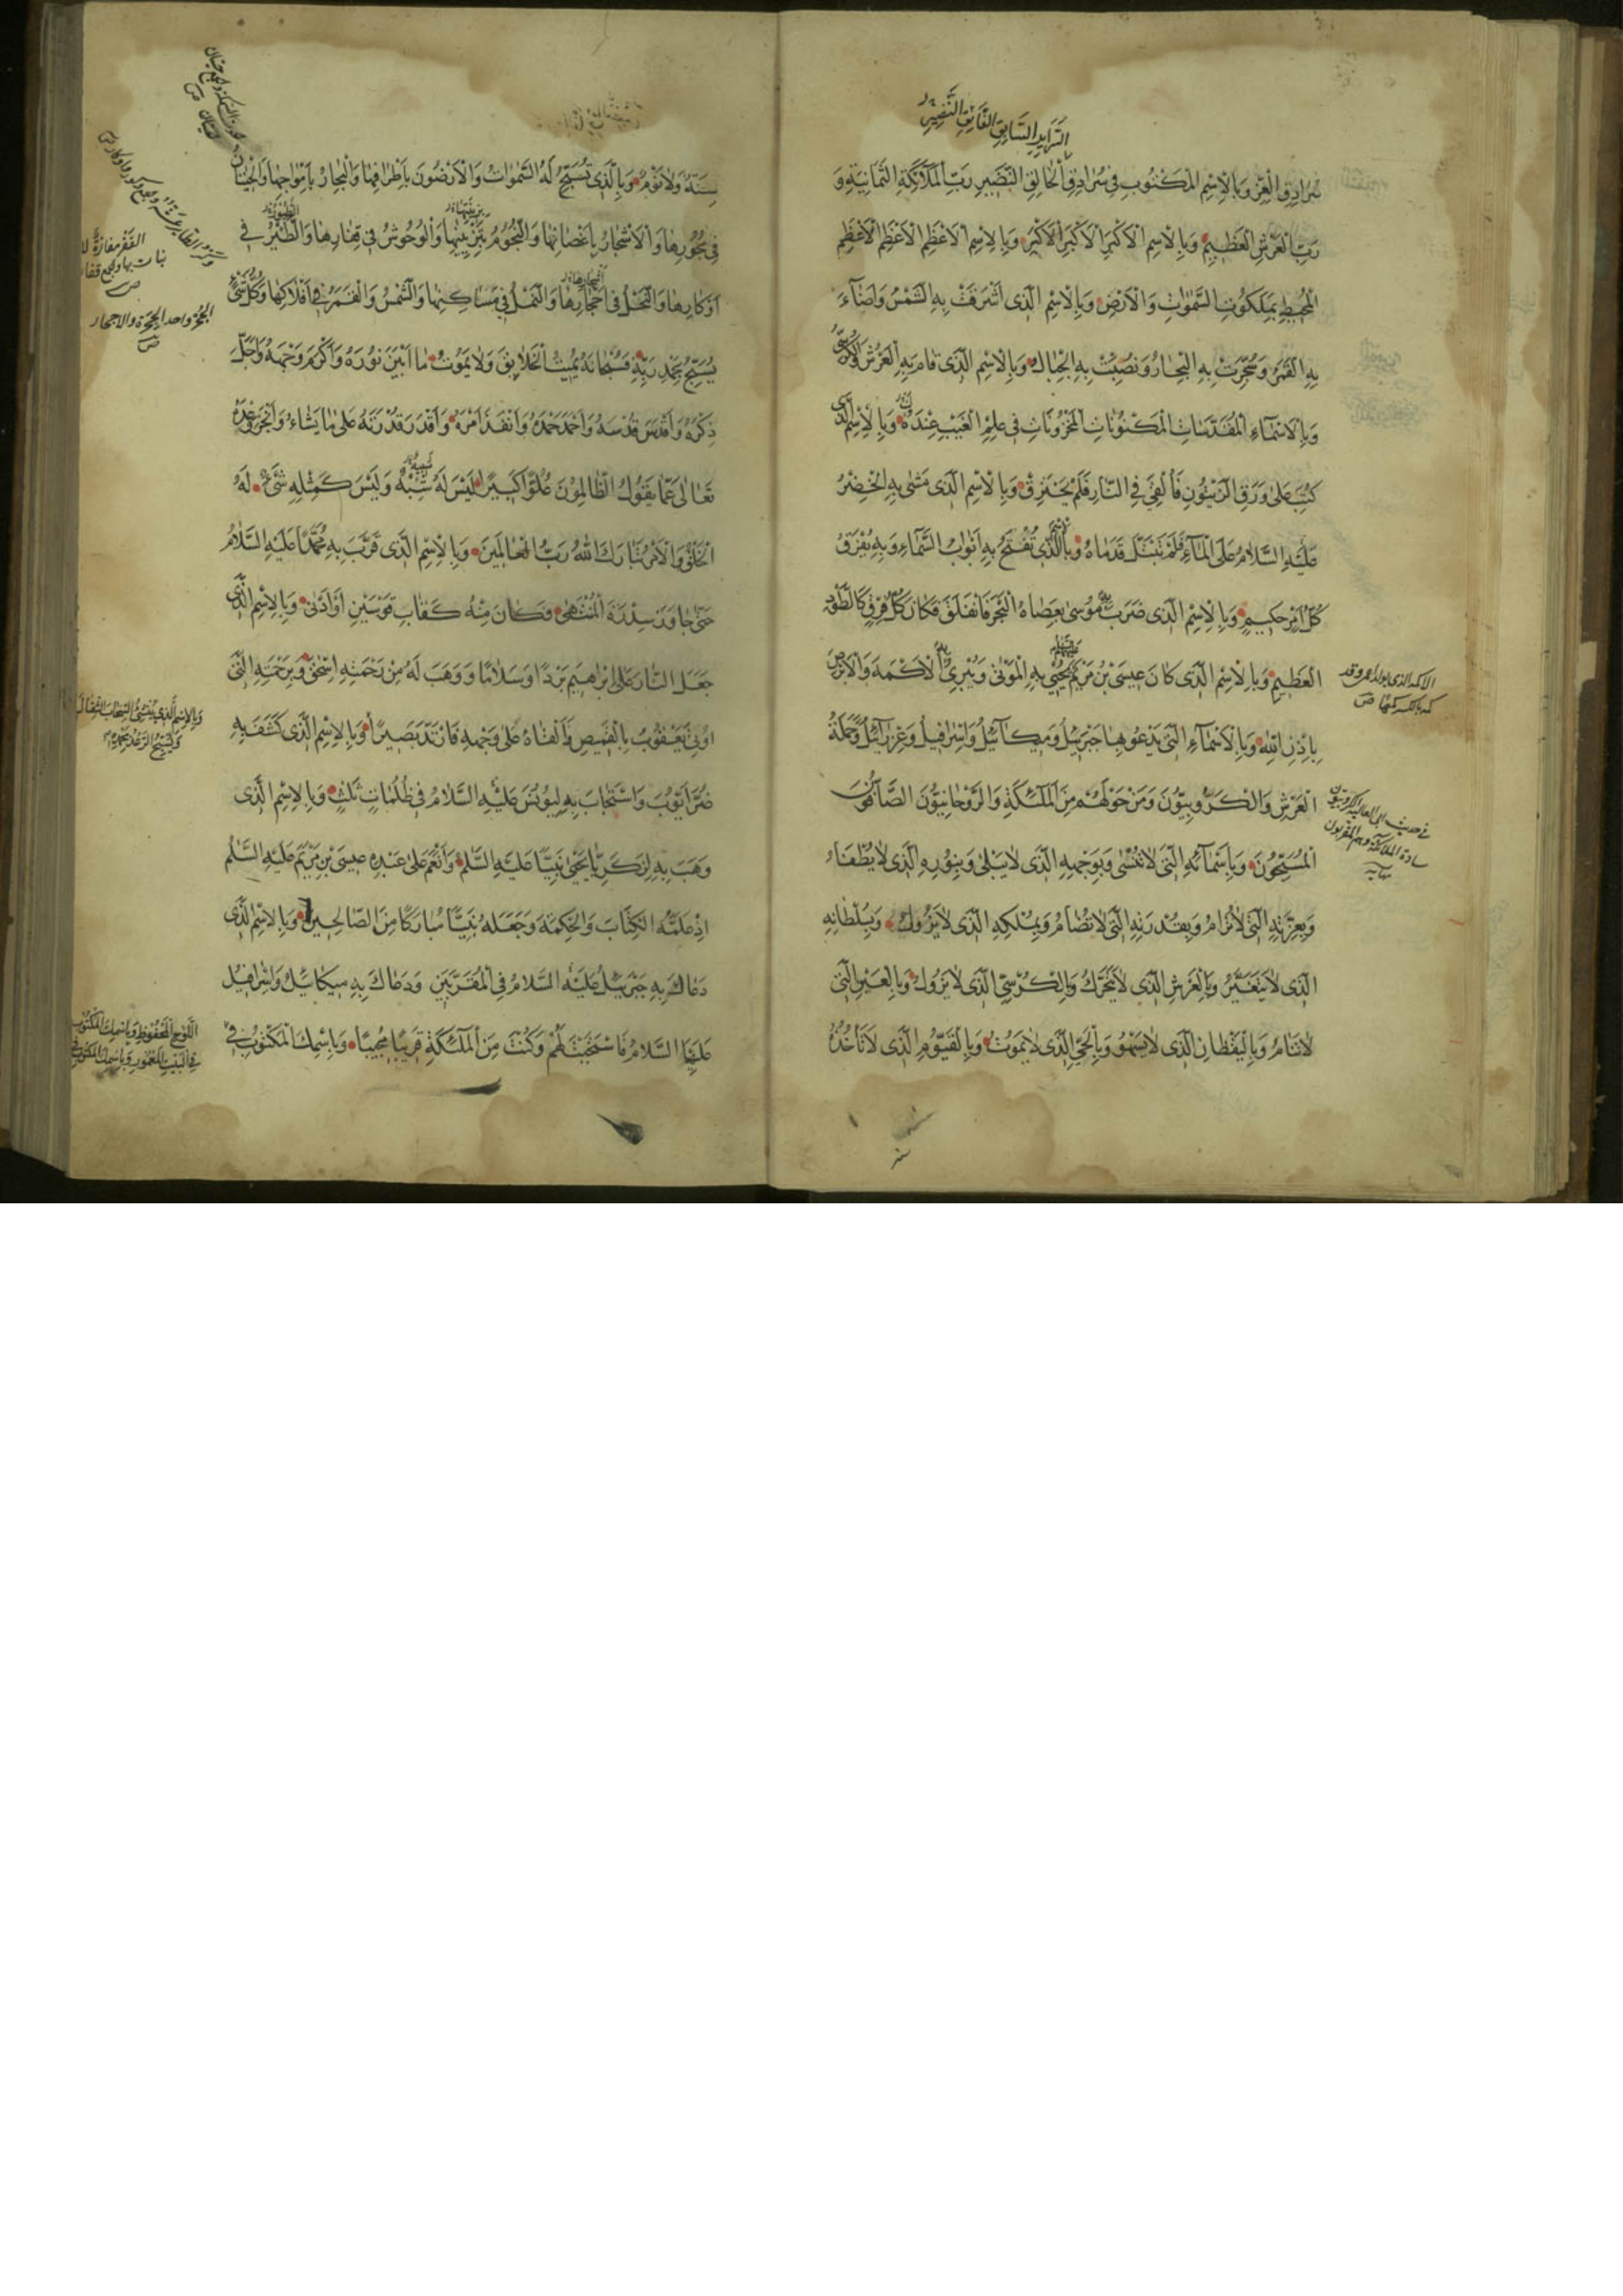 السرائر السابق الفائق النضير
سُرَادِقِ الْعِزِّ وَبِالْاِسْمِ الْمَكْتُوبِ فِي سُرَادِقِ الْخَالِقِ النَّضِيرِ رَبِّ الْمَلَآئِكَةِ الثَّمَانِيَةِ وَ
رَبِّ الْعَرْشِ الْعَظِيمِ وَبِالْاِسْمِ الْاَكْبَرِ الْاَكْبَرِ الْاَكْبَرِ وَبِالْاِسْمِ الْاَعْظَمِ الْاَعْظَمِ الْاَعْظَمِ
الْمُحِيطِ بِمَلَكُوتِ السَّمٰوَاتِ وَالْاَرْضِ وَبِالْاِسْمِ الَّذِي اَشْرَقَتْ بِهِ الشَّمْسُ وَاَضَآءَ
بِهِ الْقَمَرُ وَسُجِّرَتْ بِهِ الْبِحَارُ وَنُصِبَتْ بِهِ الْجِبَالُ وَبِالْاِسْمِ الَّذِي قَامَ بِهِ الْعَرْشُ وَالْكُرْسِيُّ
وَبِالْاَسْمَآءِ الْمُقَدَّسَاتِ الْمَكْنُونَاتِ الْمَخْزُونَاتِ فِي عِلْمِ الْغَيْبِ عِنْدَهُ وَبِالْاِسْمِ الَّذِي
كُتِبَ عَلٰى وَرَقِ الزَّيْتُونِ فَاُلْقِيَ فِي النَّارِ فَلَمْ يَحْتَرِقْ وَبِالْاِسْمِ الَّذِي مَشٰى بِهِ الْخِضْرُ
عَلَيْهِ السَّلَامُ عَلَى الْمَآءِ فَلَمْ تَبْتَلَّ قَدَمَاهُ وَبِالَّذِي تُفْتَحُ بِهِ اَبْوَابُ السَّمَآءِ وَبِهِ يُفْرَقُ
كُلُّ اَمْرٍ حَكِيمٍ وَبِالْاِسْمِ الَّذِي ضَرَبَ بِهِ مُوسٰى بِعَصَاهُ الْبَحْرَ فَانْفَلَقَ فَكَانَ كُلُّ فِرْقٍ كَالطَّوْدِ
الْعَظِيمِ وَبِالْاِسْمِ الَّذِي كَانَ عِيسَى بْنُ مَرْيَمَ يُحْيِي بِهِ الْمَوْتٰى وَيُبْرِئُ بِهِ الْاَكْمَهَ وَالْاَبْرَصَ
بِاِذْنِ اللهِ وَبِالْاَسْمَآءِ الَّتِي يَدْعُو بِهَا جَبْرَئِيلُ وَمِيكَآئِيلُ وَاِسْرَافِيلُ وَعِزْرَآئِيلُ وَحَمَلَةُ
الْعَرْشِ وَالْكَرُّوبِيُّونَ وَمَنْ حَوْلَهُمْ مِنَ الْمَلٰٓئِكَةِ وَالرَّوْحَانِيُّونَ الصَّآفُّونَ
الْمُسَبِّحُونَ وَبِاَسْمَآئِهِ الَّتِي لَا تُنْسٰى وَبِوَجْهِهِ الَّذِي لَا يَبْلٰى وَبِنُورِهِ الَّذِي لَا يُطْفَاُ
وَبِعِزَّتِهِ الَّتِي لَا تُرَامُ وَبِقُدْرَتِهِ الَّتِي لَا تُضَامُ وَبِمُلْكِهِ الَّذِي لَا يَزُولُ وَبِسُلْطَانِهِ
الَّذِي لَا يَتَغَيَّرُ وَبِالْعَرْشِ الَّذِي لَا يَتَحَرَّكُ وَبِالْكُرْسِيِّ الَّذِي لَا يَزُولُ وَبِالْعَيْنِ الَّتِي
لَا تَنَامُ وَبِالْيَقْظَانِ الَّذِي لَا يَسْهُو وَبِالْحَيِّ الَّذِي لَا يَمُوتُ وَبِالْقَيُّومِ الَّذِي لَا تَأْخُذُهُ
الاكمه الذى يولد اعمى وقد
كمه بالكسر كمها ص
فى حديث ابى العالية الكروبيون
سادة الملائكة وهم المقربون
نهاية
سِنَةٌ وَلَا نَوْمٌ وَبِالَّذِي تُسَبِّحُ لَهُ السَّمٰوَاتُ وَالْاَرَضُونَ بِاَطْرَافِهَا وَالْبِحَارُ بِاَمْوَاجِهَا وَالْحِيتَانُ
فِي بُحُورِهَا وَالْاَشْجَارُ بِاَغْصَانِهَا وَالنُّجُومُ بِتَزْيِينِهَا وَالْوُحُوشُ فِي قِفَارِهَا وَالطَّيْرُ فِي
اَوْكَارِهَا وَالنَّحْلُ فِي اَحْجَارِهَا وَالنَّمْلُ فِي مَسَاكِنِهَا وَالشَّمْسُ وَالْقَمَرُ فِي اَفْلَاكِهَا وَكُلُّ شَيْءٍ
يُسَبِّحُ بِحَمْدِ رَبِّهِ فَسُبْحَانَهُ يُمِيتُ الْخَلَايِقَ وَلَا يَمُوتُ مَا اَبْيَنَ نُورَهُ وَاَكْرَمَ وَجْهَهُ وَاَجَلَّ
ذِكْرَهُ وَاَقْدَسَ قُدْسَهُ وَاَحْمَدَ حَمْدَهُ وَاَنْفَذَ اَمْرَهُ وَاَقْدَرَ قُدْرَتَهُ عَلٰى مَا يَشَآءُ وَاَنْجَزَ وَعْدَهُ
تَعَالٰى عَمَّا يَقُولُ الظَّالِمُونَ عُلُوًّا كَبِيرًا لَيْسَ لَهُ شِبْهٌ وَلَيْسَ كَمِثْلِهِ شَيْءٌ لَهُ
الْخَلْقُ وَالْاَمْرُ تَبَارَكَ اللهُ رَبُّ الْعَالَمِينَ وَبِالْاِسْمِ الَّذِي قَرَّبَ بِهِ مُحَمَّدًا عَلَيْهِ السَّلَامُ
حَتّٰى جَاوَزَ سِدْرَةَ الْمُنْتَهٰى فَكَانَ مِنْهُ كَقَابِ قَوْسَيْنِ اَوْ اَدْنٰى وَبِالْاِسْمِ الَّذِي
جَعَلَ النَّارَ عَلٰى اِبْرَاهِيمَ بَرْدًا وَسَلَامًا وَوَهَبَ لَهُ مِنْ رَحْمَتِهِ اِسْحٰقَ وَبِرَحْمَتِهِ الَّتِي
اُوتِيَ يَعْقُوبُ بِالْقَمِيصِ فَاَلْقَاهُ عَلٰى وَجْهِهِ فَارْتَدَّ بَصِيرًا وَبِالْاِسْمِ الَّذِي كَشَفَ بِهِ
ضُرَّ اَيُّوبَ وَاسْتَجَابَ بِهِ لِيُونُسَ عَلَيْهِ السَّلَامُ فِي ظُلُمَاتٍ ثَلٰثٍ وَبِالْاِسْمِ الَّذِي
وَهَبَ بِهِ لِزَكَرِيَّا يَحْيٰى نَبِيًّا عَلَيْهِ السَّلٰمُ وَاَنْعَمَ عَلٰى عَبْدِهِ عِيسَى بْنِ مَرْيَمَ عَلَيْهِ السَّلٰمُ
اِذْ عَلَّمَهُ الْكِتَابَ وَالْحِكْمَةَ وَجَعَلَهُ نَبِيًّا مُبَارَكًا مِنَ الصَّالِحِينَ وَبِالْاِسْمِ الَّذِي
دَعَاكَ بِهِ جَبْرَئِيلُ عَلَيْهِ السَّلَامُ فِي الْمُقَرَّبِينَ وَدَعَاكَ بِهِ مِيكَائِيلُ وَاِسْرَافِيلُ
عَلَيْهِمَا السَّلَامُ فَاسْتَجَبْتَ لَهُمْ وَكُنْتَ مِنَ الْمَلٰٓئِكَةِ قَرِيبًا مُجِيبًا وَبِاسْمِكَ الْمَكْتُوبِ فِي
القفر مفازة لا
نبات بها والجمع قفار
ص
الجحر واحد الجحرة والاجحار
ص
وَبِالْاِسْمِ الَّذِي يُنْشِئُ السَّحَابَ الثِّقَالَ
وَيُسَبِّحُ الرَّعْدُ بِحَمْدِهِ
اللَّوْحِ الْمَحْفُوظِ وَبِاسْمِكَ الْمَكْتُوبِ
فِي الْبَيْتِ الْمَعْمُورِ وَبِاسْمِكَ الْمَكْتُوبِ فِي